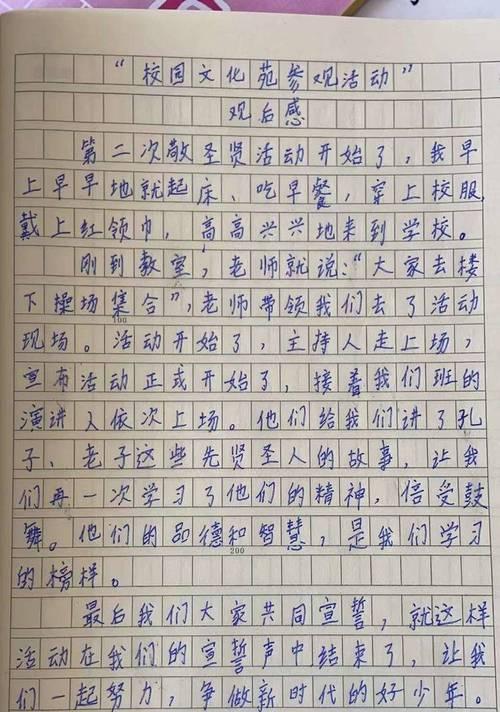 “校园文化苑参观活动”
观后感
第二次敬圣贤活动开始了，我早
上早早地就起床、吃早餐，穿上校服，
戴上红领巾，高高兴兴地来到学校。
刚到教室，老师就说：“大家去楼
下操场集合”，老师带领我们去了活动
100
现场。活动开始了，主持人走上场，
宣布活动正式开始了，接着我们班的
演讲人依次上场。他们给我们讲了孔
子、老子这些先贤圣人的故事，让我
们再一次学习了他们的精神，倍受鼓
舞。他们的品德和智慧，是我们学习
200
的榜样。
最后我们大家共同宣誓，就这样
活动在我们的宣誓声中结束了，让我
们一起努力，争做新时代的好少年。